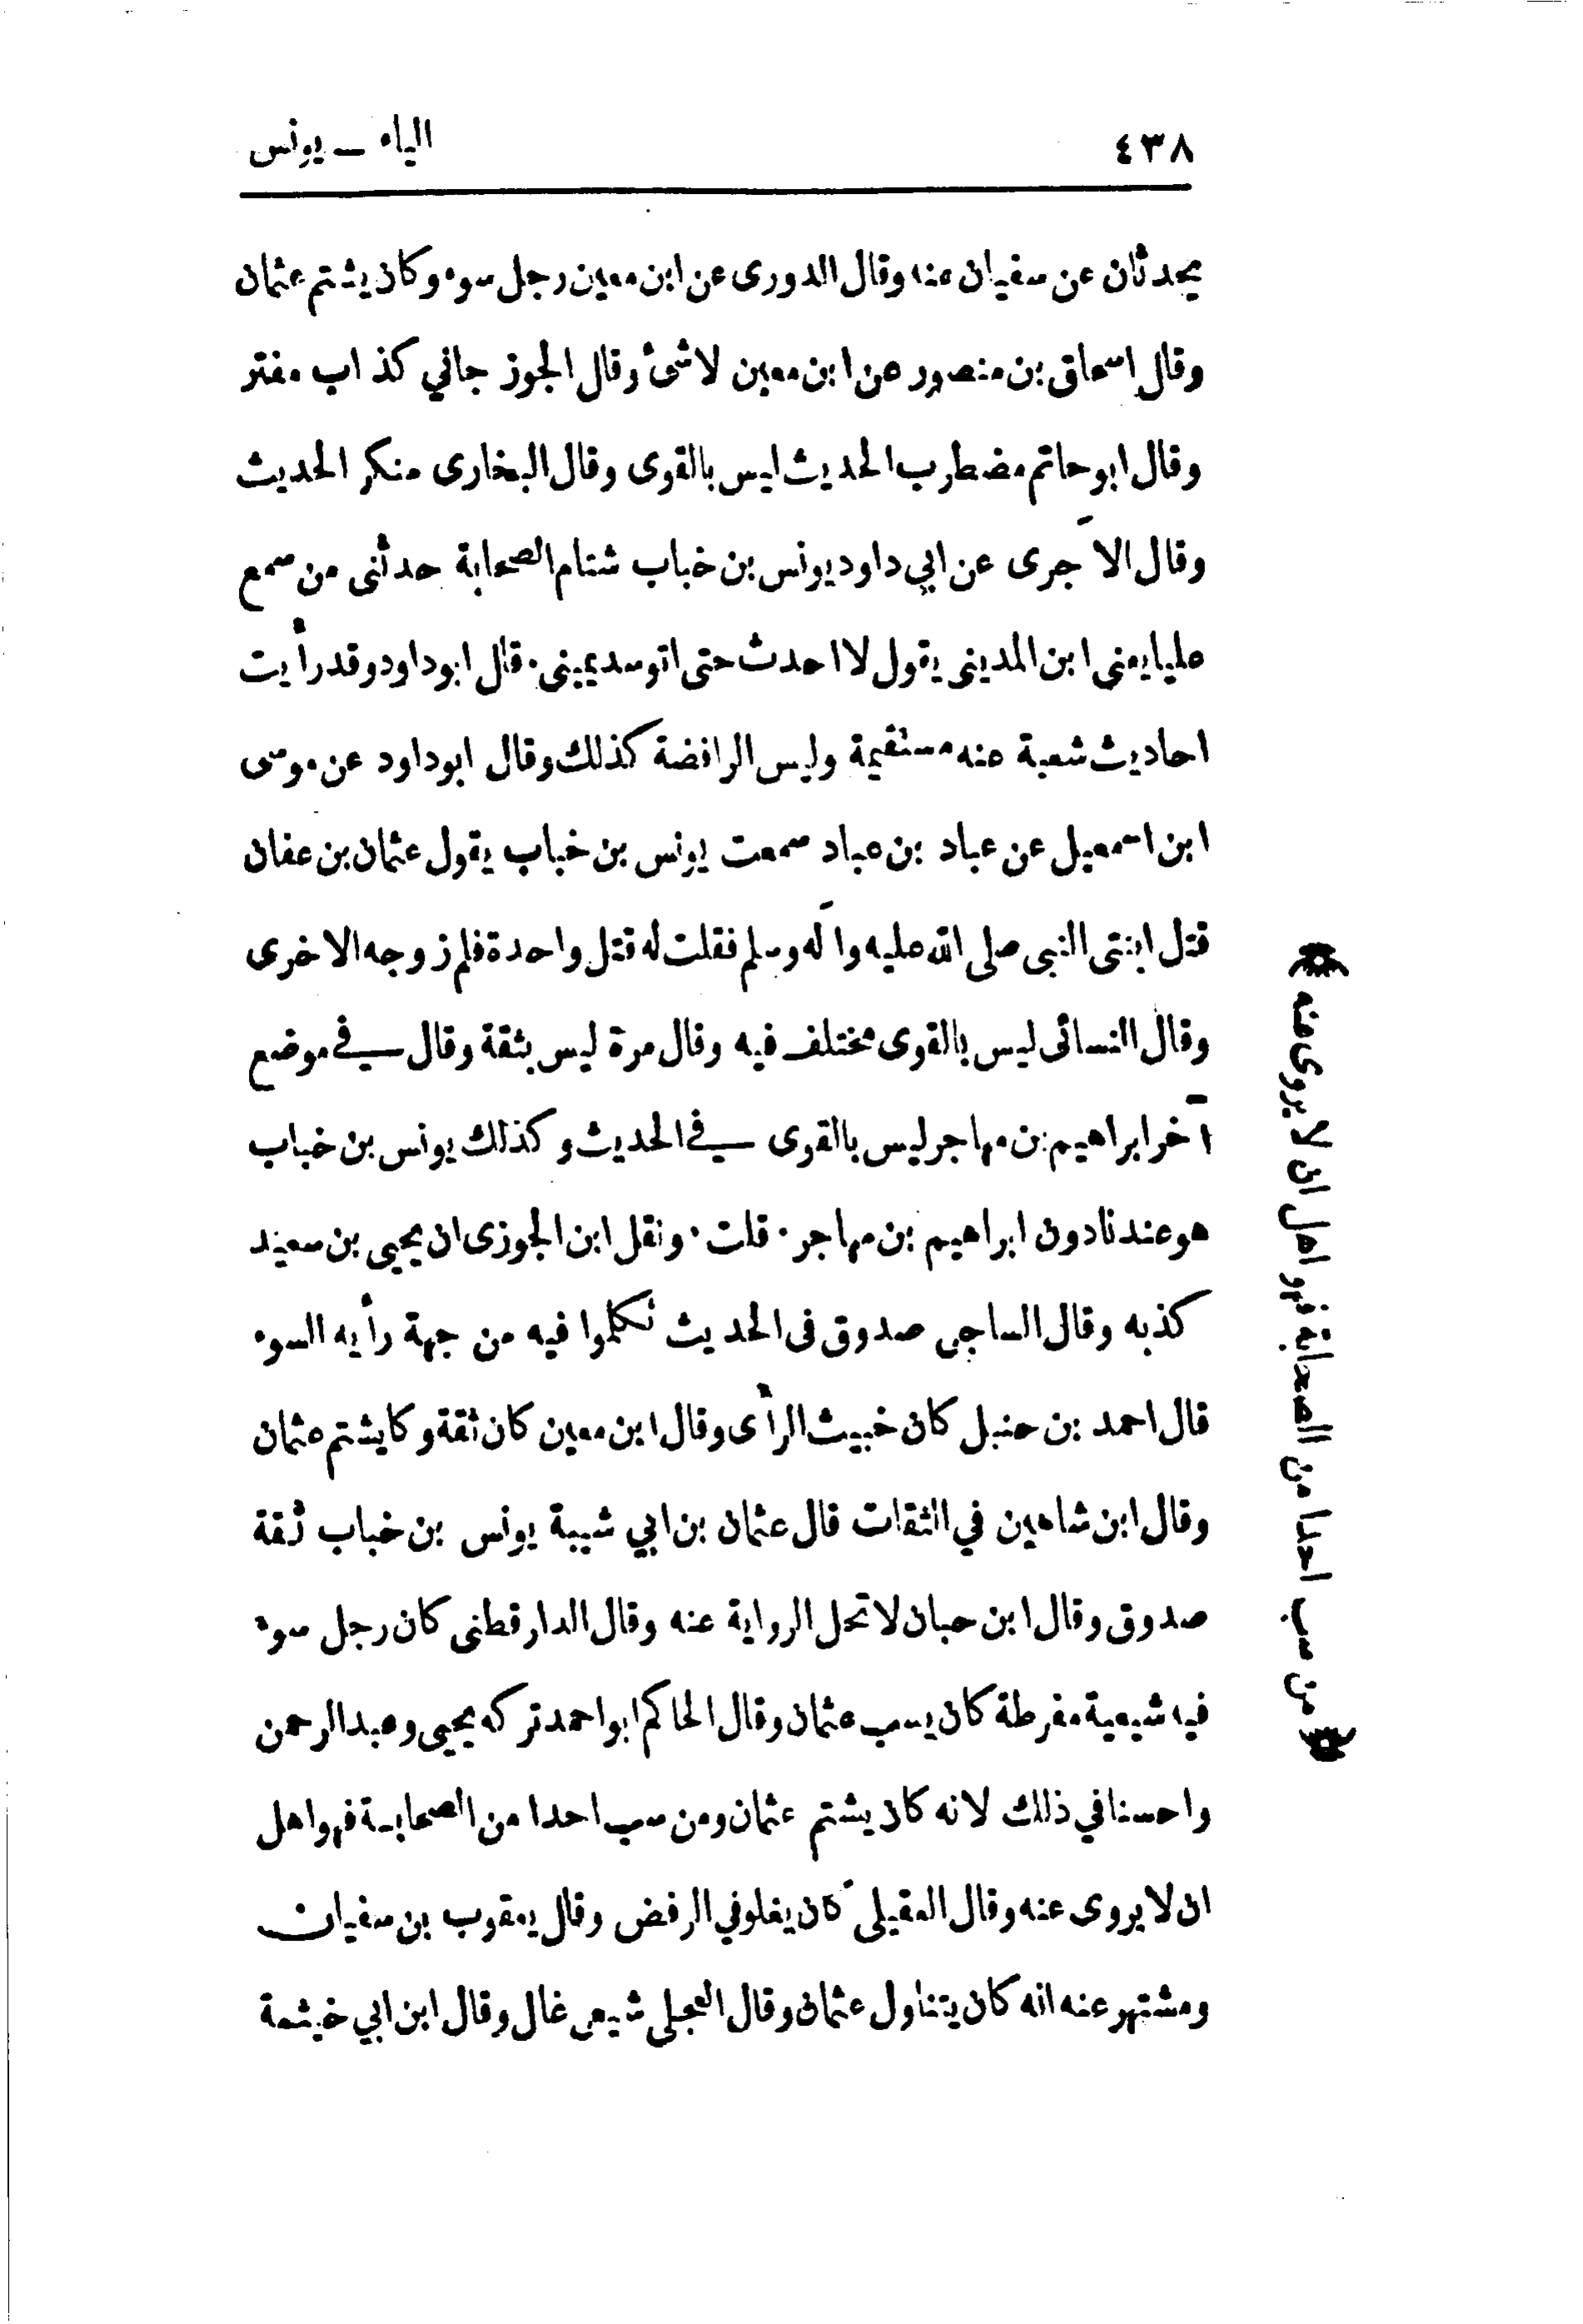 ٤٣٨
الياء — يونس
يحدثان عن سفيان عنه وقال الدورى عن ابن معين رجل سوء وكان يشتم عثمان
وقال اسحاق بن منصور عن ابن معين لاشئ وقال الجوز جاني كذاب مفتر
وقال ابو حاتم مضطرب الحديث ليس بالقوى وقال البخارى منكر الحديث
وقال الآجرى عن ابي داود يونس بن خباب شتام الصحابة حدثنى من سمع
عليا يعنى ابن المدينى يقول لا احدث حتى اتوسد يمينى · قال ابو داود وقد رأيت
احاديث شعبة عنه مستقيمة وليس الرافضة كذلك وقال ابو داود عن موسى
ابن اسمعيل عن عباد بن عباد سمعت يونس بن خباب يقول عثمان بن عفان
قتل ابنتى النبى صلى الله عليه وآله وسلم فقلت له قتل واحدة فلم زوجه الاخرى
وقال النسائى ليس بالقوى مختلف فيه وقال مرة ليس بثقة وقال في موضع
آخر ابراهيم بن مهاجر ليس بالقوى في الحديث وكذلك يونس بن خباب
هو عندنا دون ابراهيم بن مهاجر · قلت · ونقل ابن الجوزى ان يحيى بن سعيد
كذبه وقال الساجى صدوق فى الحديث تكلموا فيه من جهة رأيه السوء
قال احمد بن حنبل كان خبيث الرأى وقال ابن معين كان ثقة وكا يشتم عثمان
وقال ابن شاهين في الثقات قال عثمان بن ابي شيبة يونس بن خباب ثقة
صدوق وقال ابن حبان لا تحل الرواية عنه وقال الدارقطنى كان رجل سوء
فيه شيعية مفرطة كان يسب عثمان وقال الحاكم ابو احمد تركه يحيى وعبد الرحمن
واحسنا في ذلك لانه كان يشتم عثمان ومن سب احدا من الصحابة فهو اهل
ان لا يروى عنه وقال العقيلى كان يغلو في الرفض وقال يعقوب بن سفيان
ومشتهر عنه انه كان يتناول عثمان وقال العجلى شيعى غال وقال ابن ابي خيثمة
من سب احدا من الصحابة فهو اهل ان لا يروى عنه